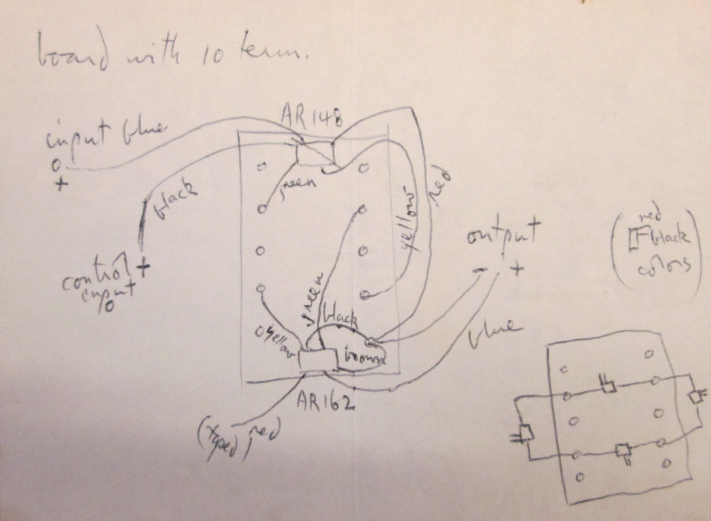 board with 10 term.
AR148
input blue
o
+
green
black
red
yellow
output
- +
red
black
colors
control +
input
o
green
black
blue
yellow
brown
AR162
red